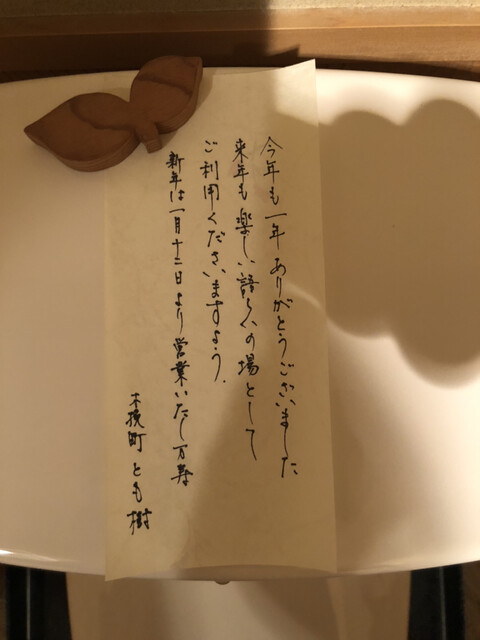 今年も一年ありがとうございました
来年も楽しい語らいの場として
ご利用くださいますよう.
新年は一月十二日より営業いたし万寿
木挽町 とも樹